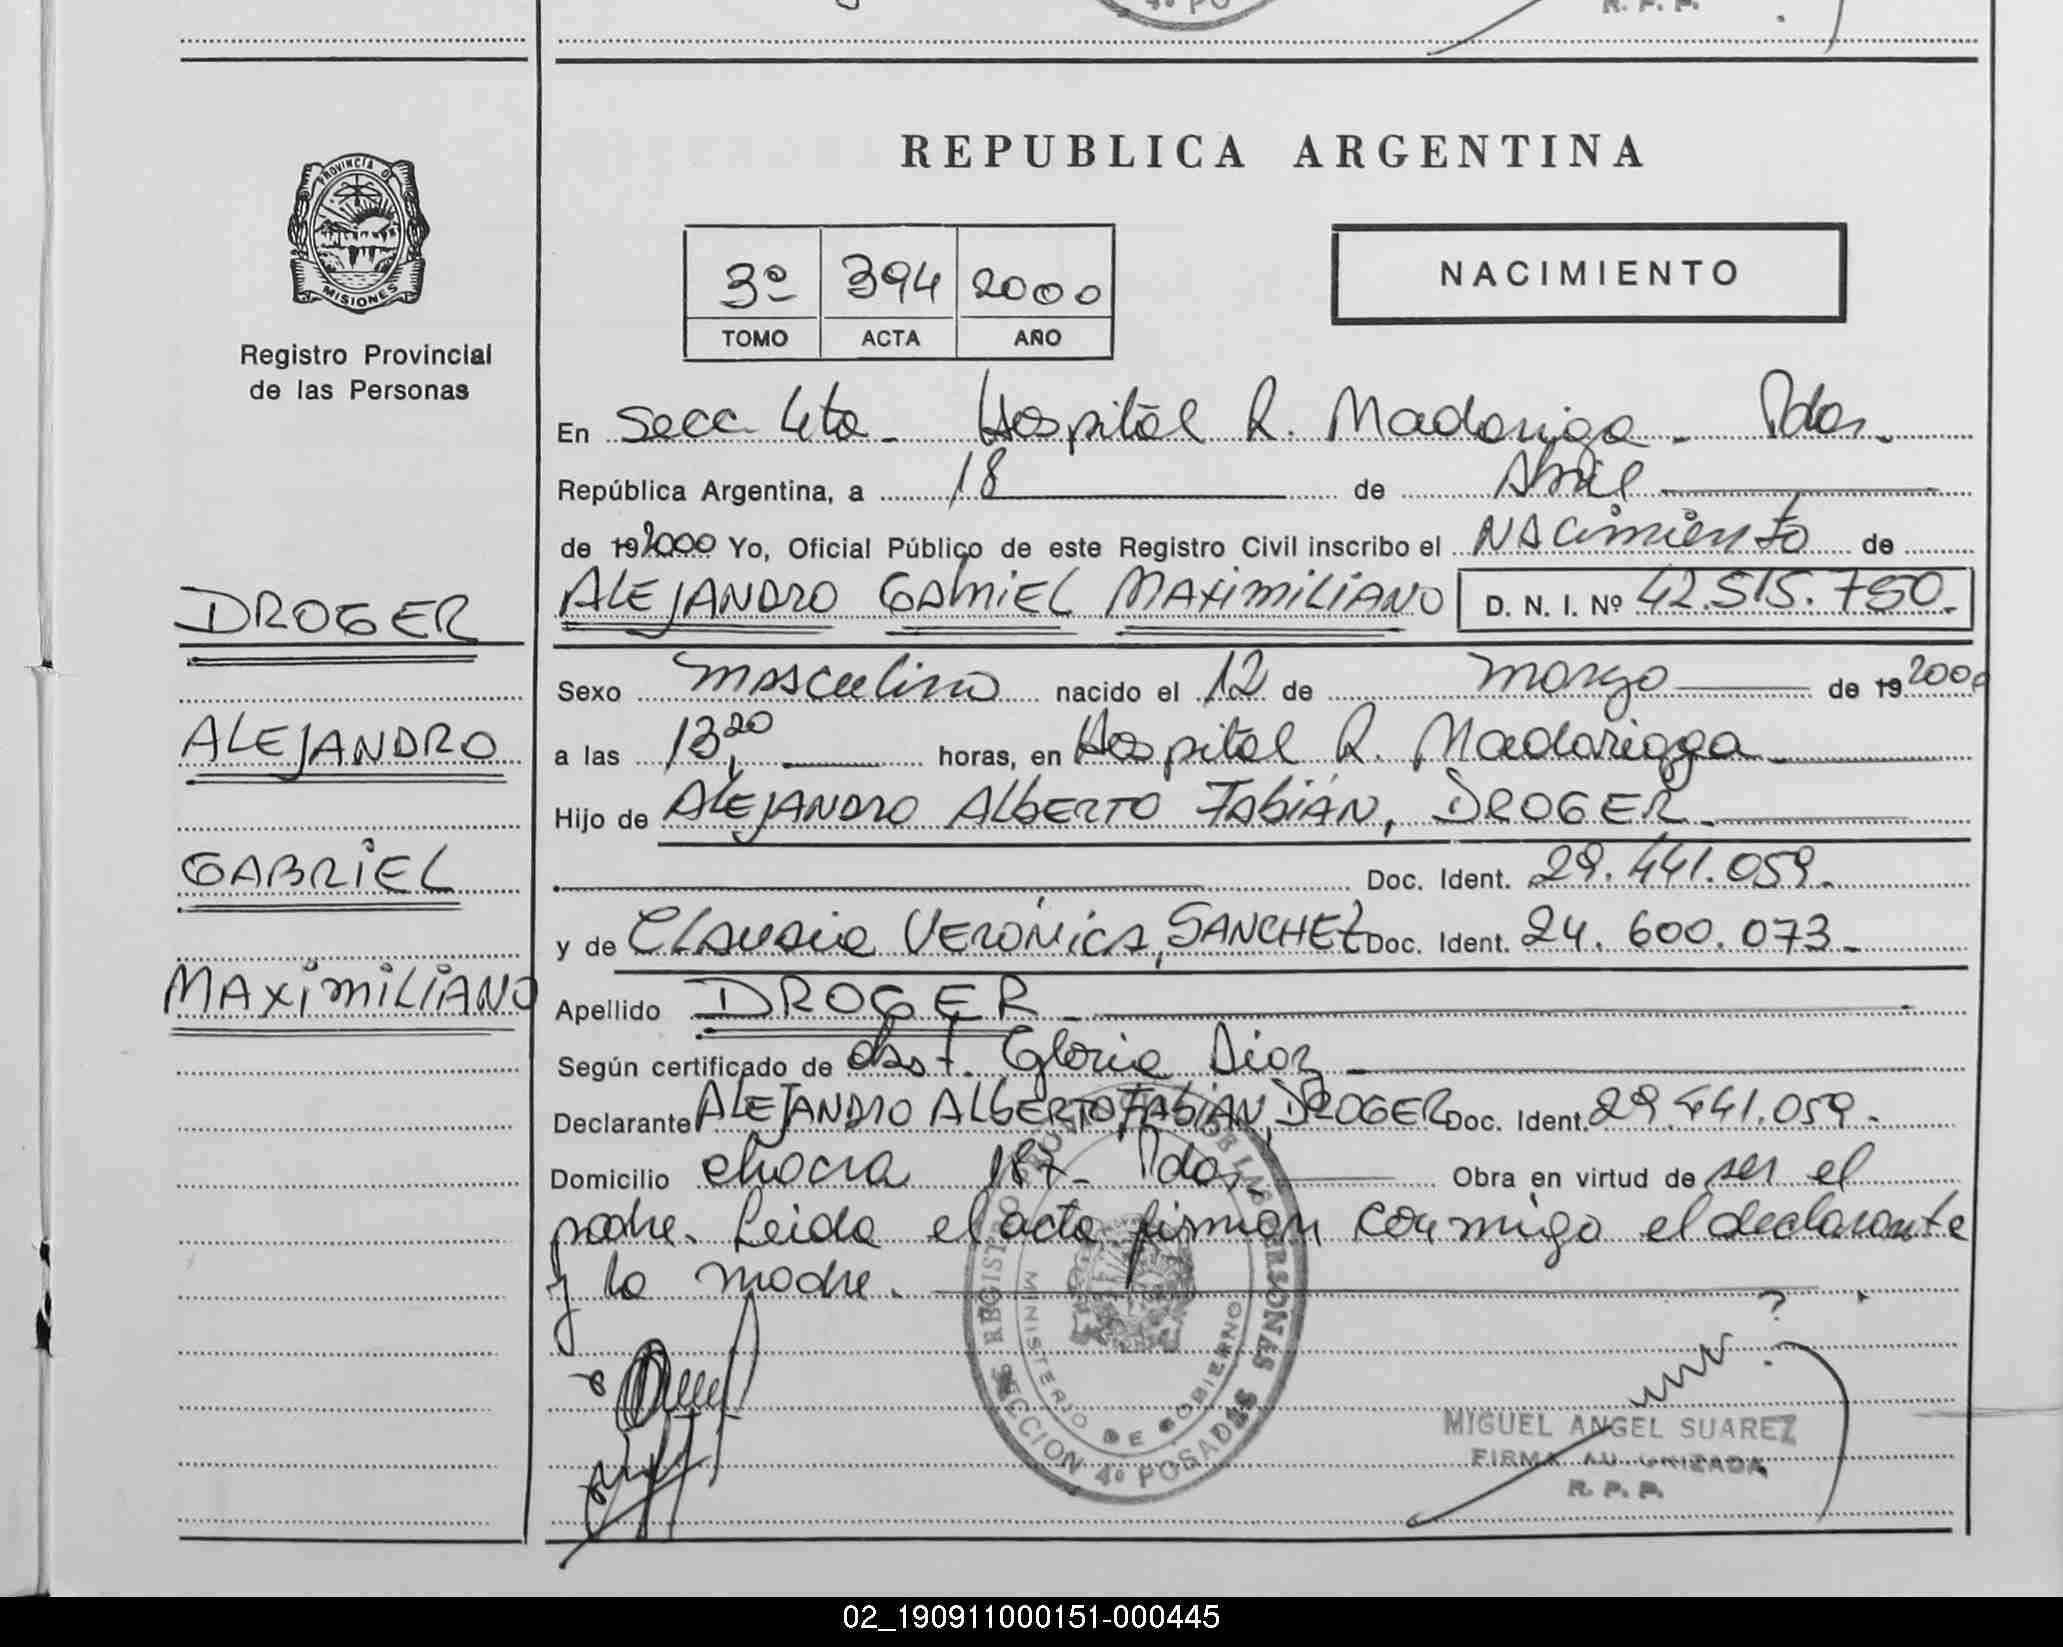 R. P. P.
PROVINCIA D
MISIONES
Registro Provincial
de las Personas
REPUBLICA ARGENTINA
3º 394 2000
TOMO ACTA AÑO
NACIMIENTO
En Secc 4ta - Hospital R. Madariaga - Pdas.
República Argentina, a 18 de Abril
de 192000 Yo, Oficial Público de este Registro Civil inscribo el Nacimiento de
DROGER
ALEJANDRO GABRIEL MAXIMILIANO D. N. I. Nº 42.515.750.
Sexo masculino nacido el 12 de marzo de 19 2000
ALEJANDRO
a las 13,20 horas, en Hospital R. Madariaga
Hijo de ALEJANDRO ALBERTO FABIÁN, DROGER.
GABRIEL
Doc. Ident. 29.441.059.
y de CLAUDIA VERÓNICA, SANCHEZ Doc. Ident. 24.600.073.
MAXIMILIANO
Apellido DROGER.
Según certificado de obst. Gloria Dioz
Declarante ALEJANDRO ALBERTO FABIÁN, DROGER Doc. Ident. 29.441.059.
Domicilio chacra 187- Pdas. Obra en virtud de ser el
padre. Leida el acta firman conmigo el declarante
y la madre.
REGISTRO PROVINCIAL DE LAS PERSONAS
MINISTERIO DE GOBIERNO
SECCION 4º POSADAS
MIGUEL ANGEL SUAREZ
FIRMA AUTORIZADA
R. P. P.
02_190911000151-000445